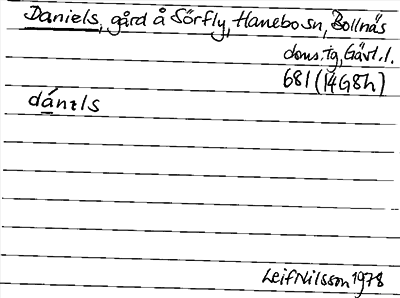 Daniels, gård å Sörfly, Hanebo sn, Bollnäs
doms.tg, Gävl. l.
681 (14G8h)
dánɩls
Leif Nilsson 1978